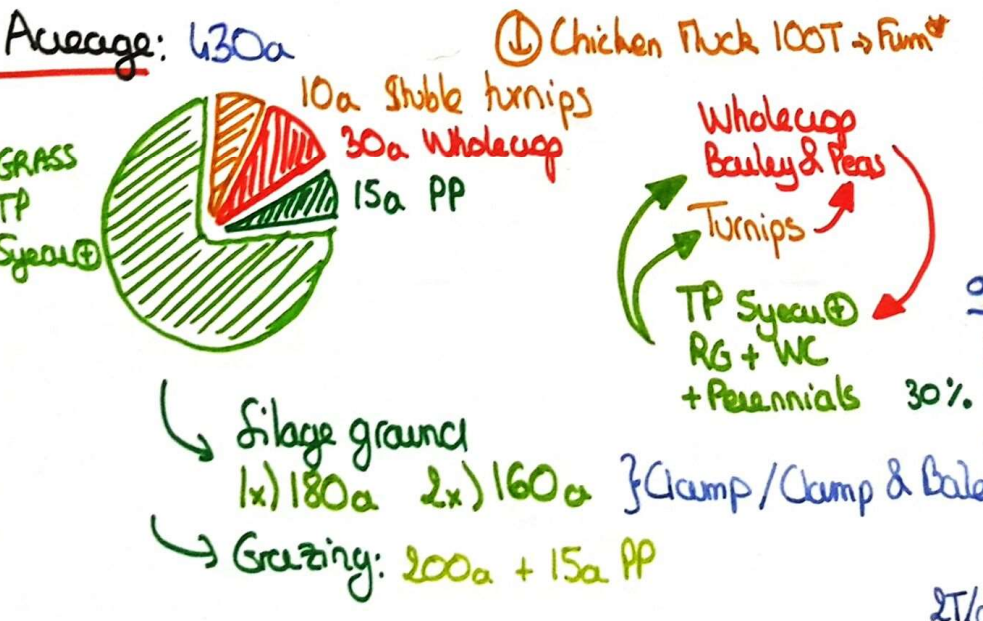 Acreage: 430a
① Chicken Muck 100T → Farm
10a Stuble turnips
30a Wholecrop
15a PP
GRASS
TP
5year+
Wholecrop
Barley & Peas
Turnips
TP 5year+
RG + WC
+ Perennials 30%
Silage ground
1x) 180a 2x) 160a } Clamp / Clamp & Bale
Grazing: 200a + 15a PP
2T/